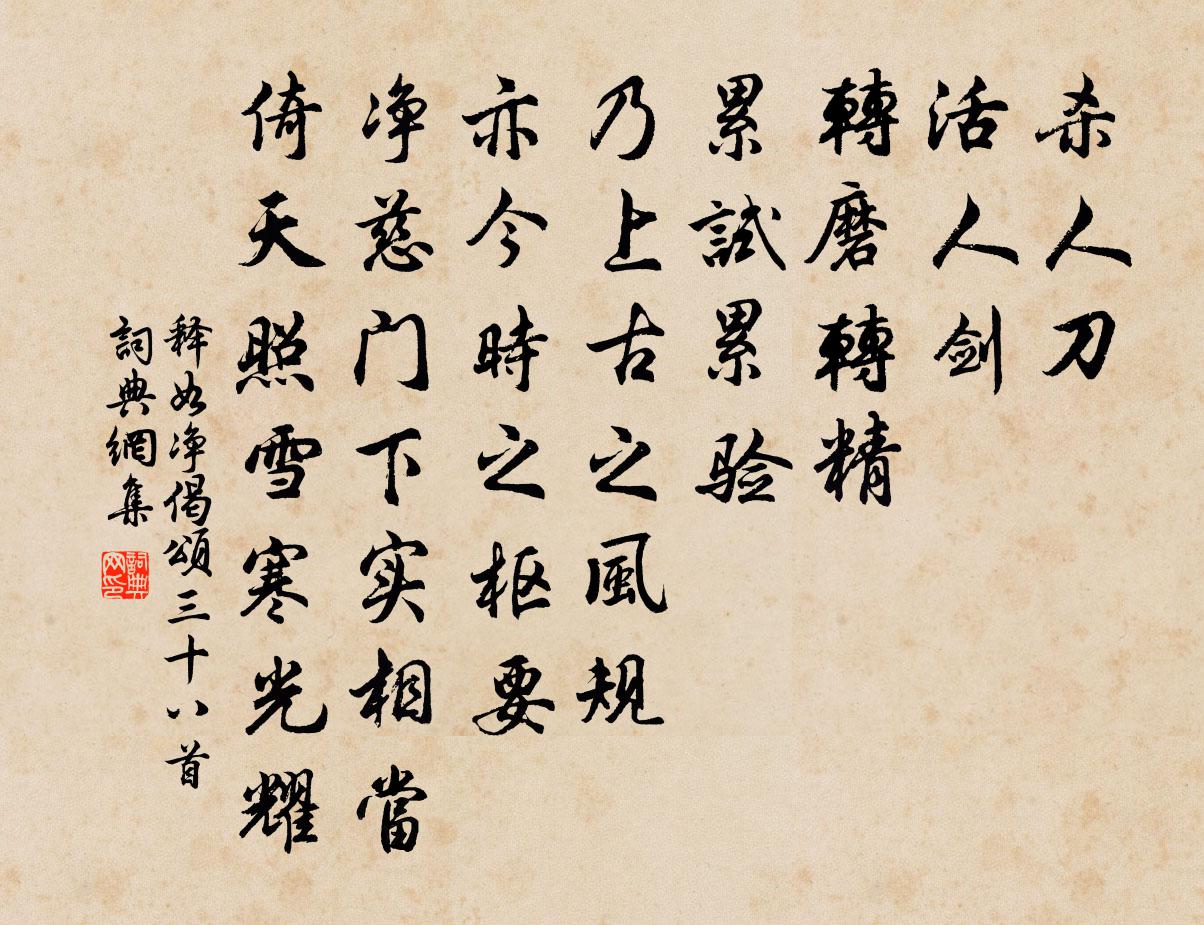 杀人刀
活人剑
轉磨轉精
累試累验
乃上古之風規
亦今時之枢要
净慈门下实相當
倚天照雪寒光耀
释如净偈頌三十八首
詞典網集
詞典网印